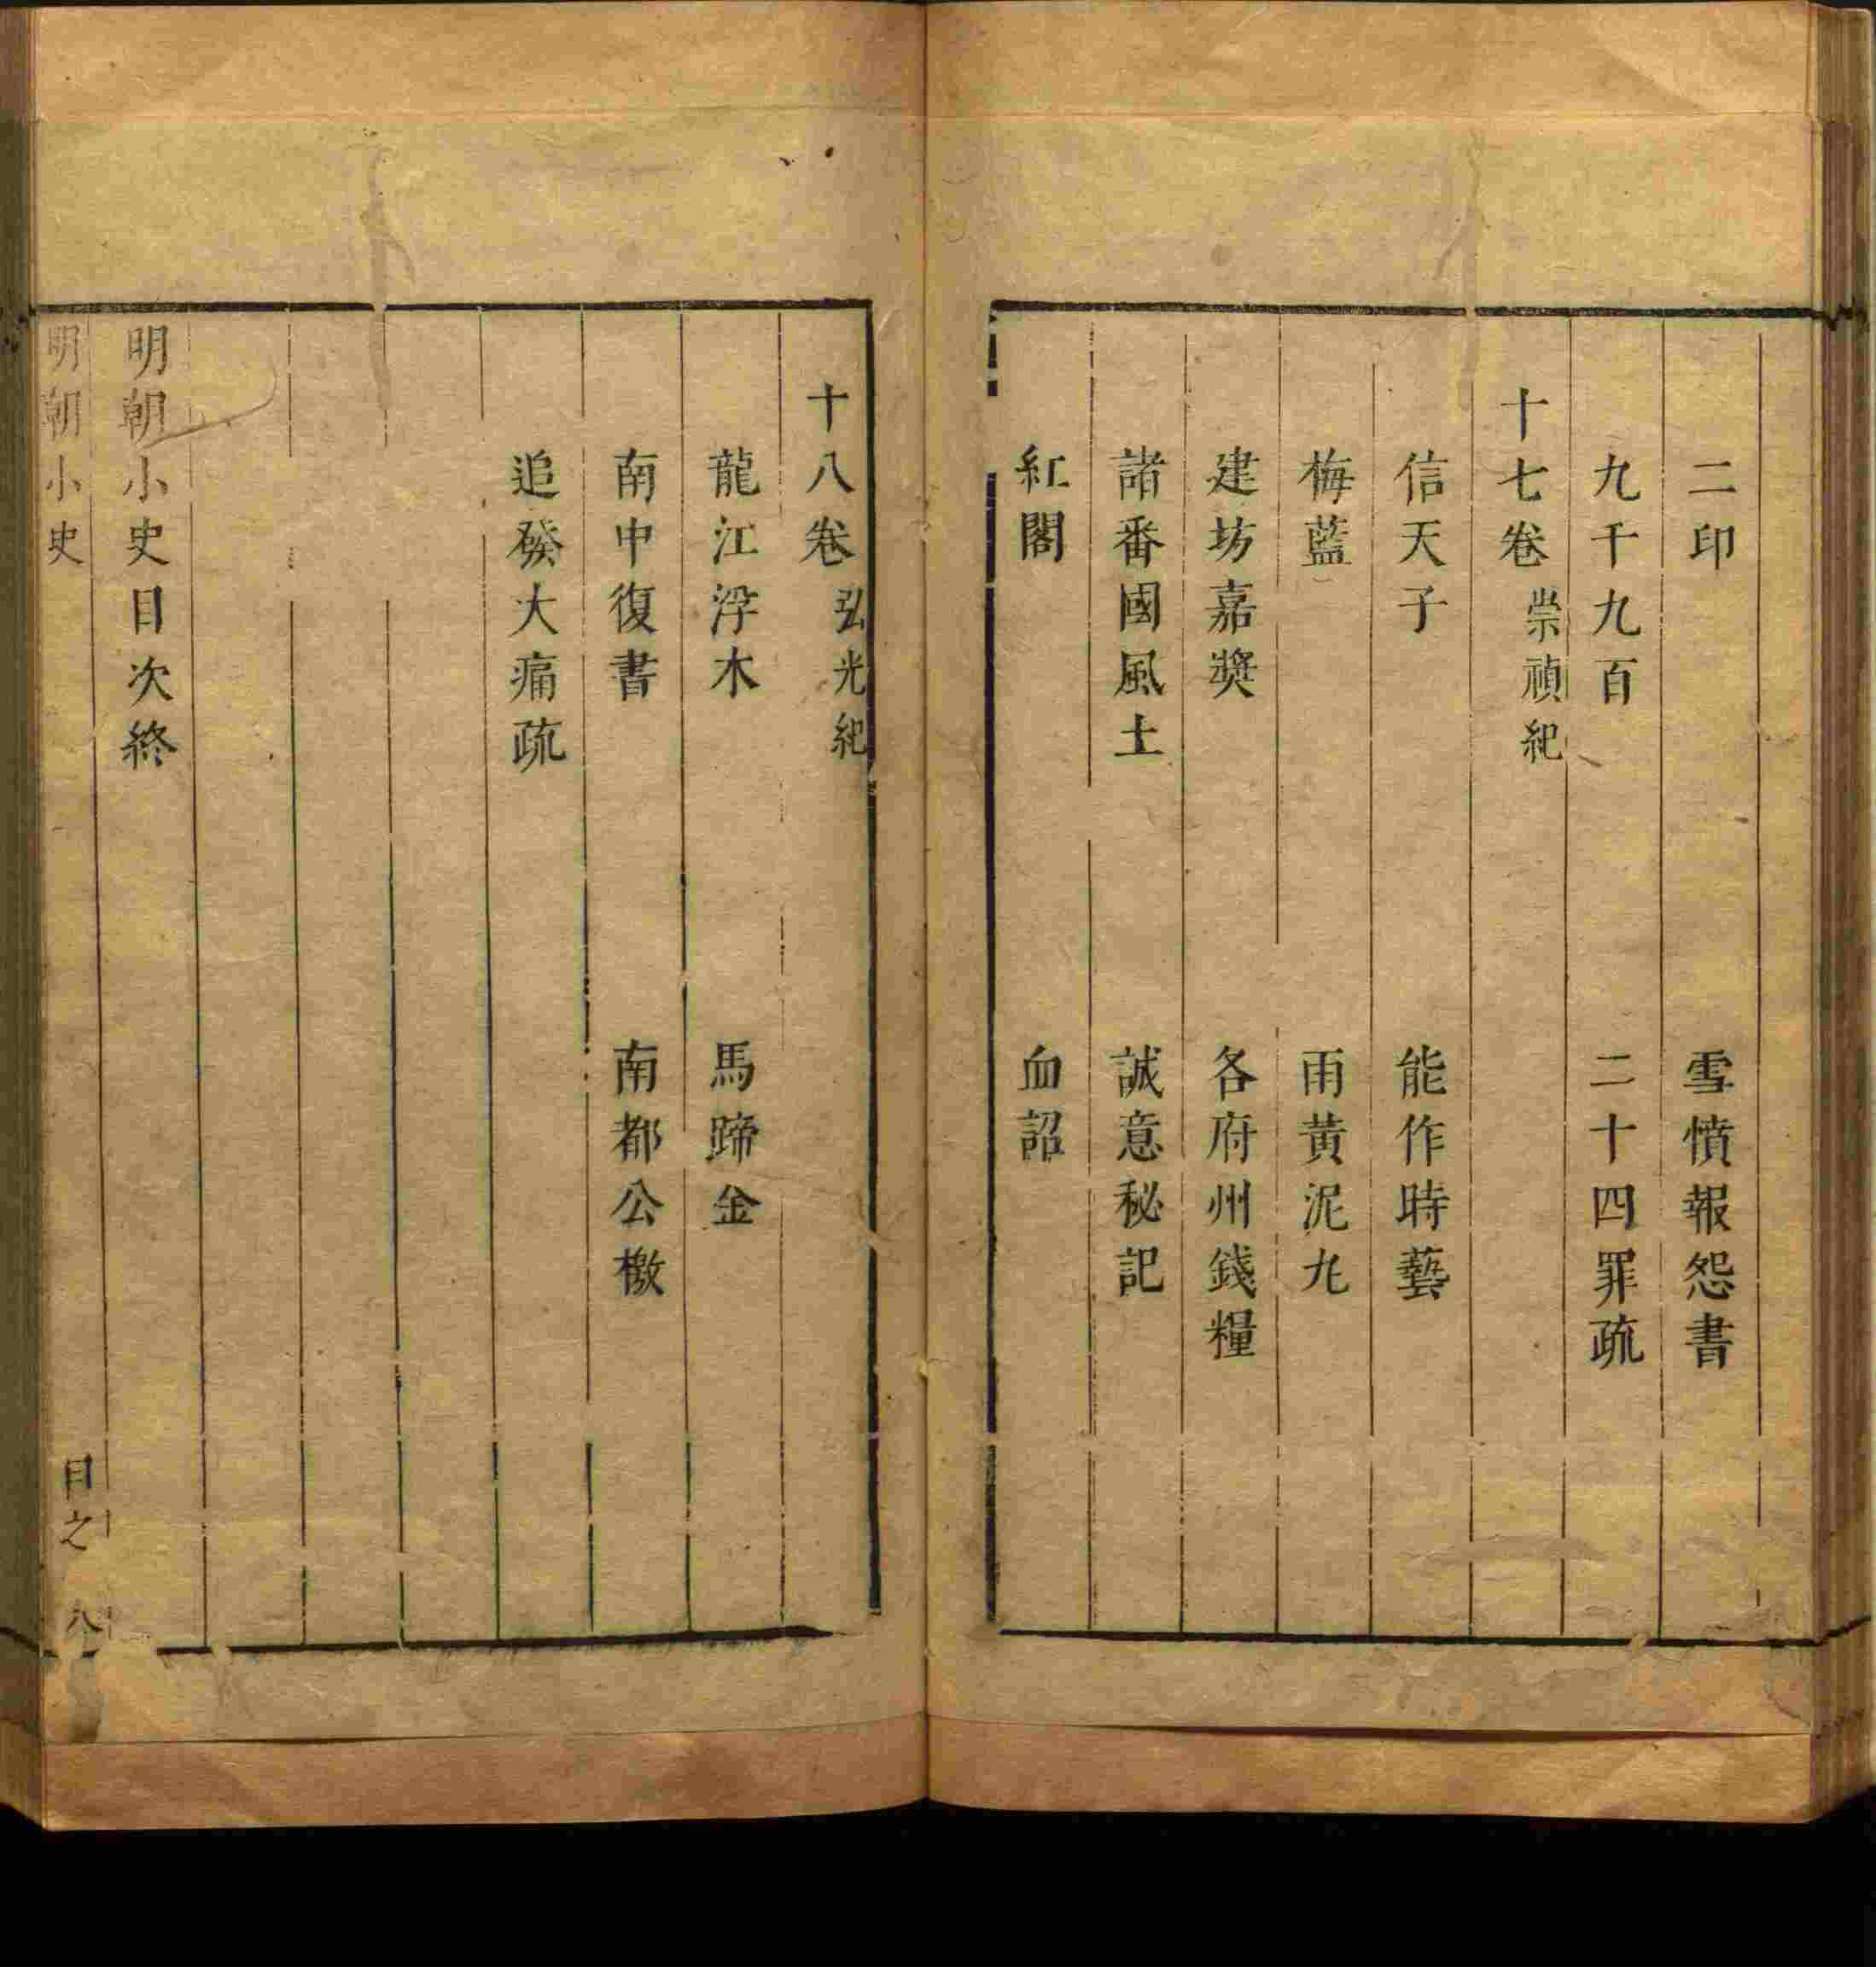 二印　雪憤報怨書
九千九百　二十四罪疏
十七卷 崇禎紀
信天子　能作時藝
梅藍　雨黃泥丸
建坊嘉奬　各府州錢糧
諸番國風土　誠意秘記
紅閣　血詔
十八卷 弘光紀
龍江浮木　馬蹄金
南中復書　南都公檄
追發大痛疏
明朝小史目次終
明朝小史　目之　八